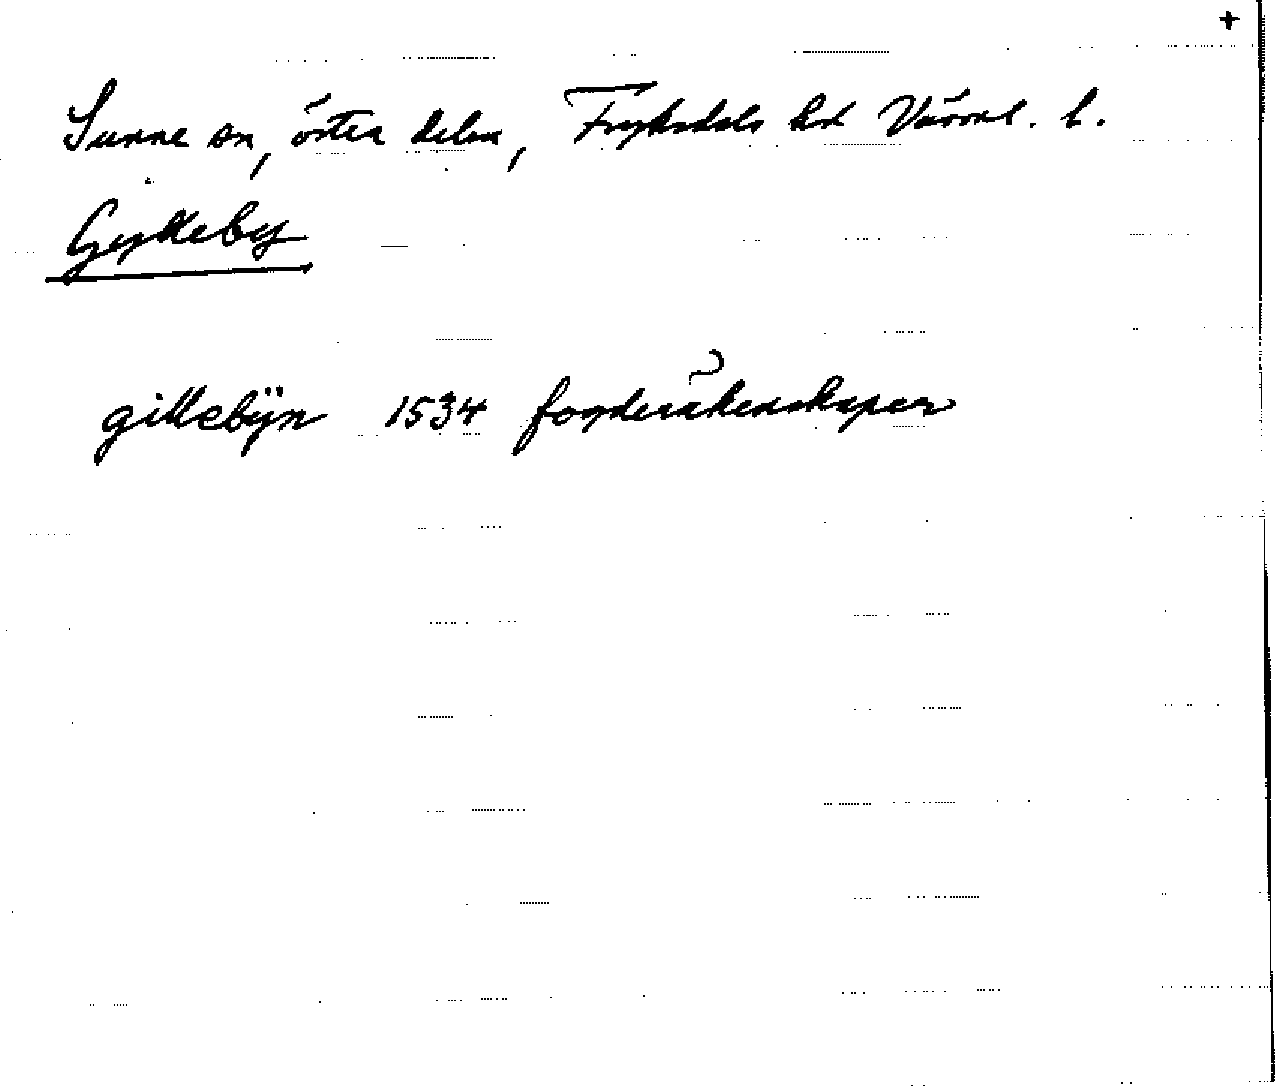 +
Sunne sn, östra delen, Fryksdals hd Värml. l.
Gylleby
gillebÿn 1534 fogderäkenskaper